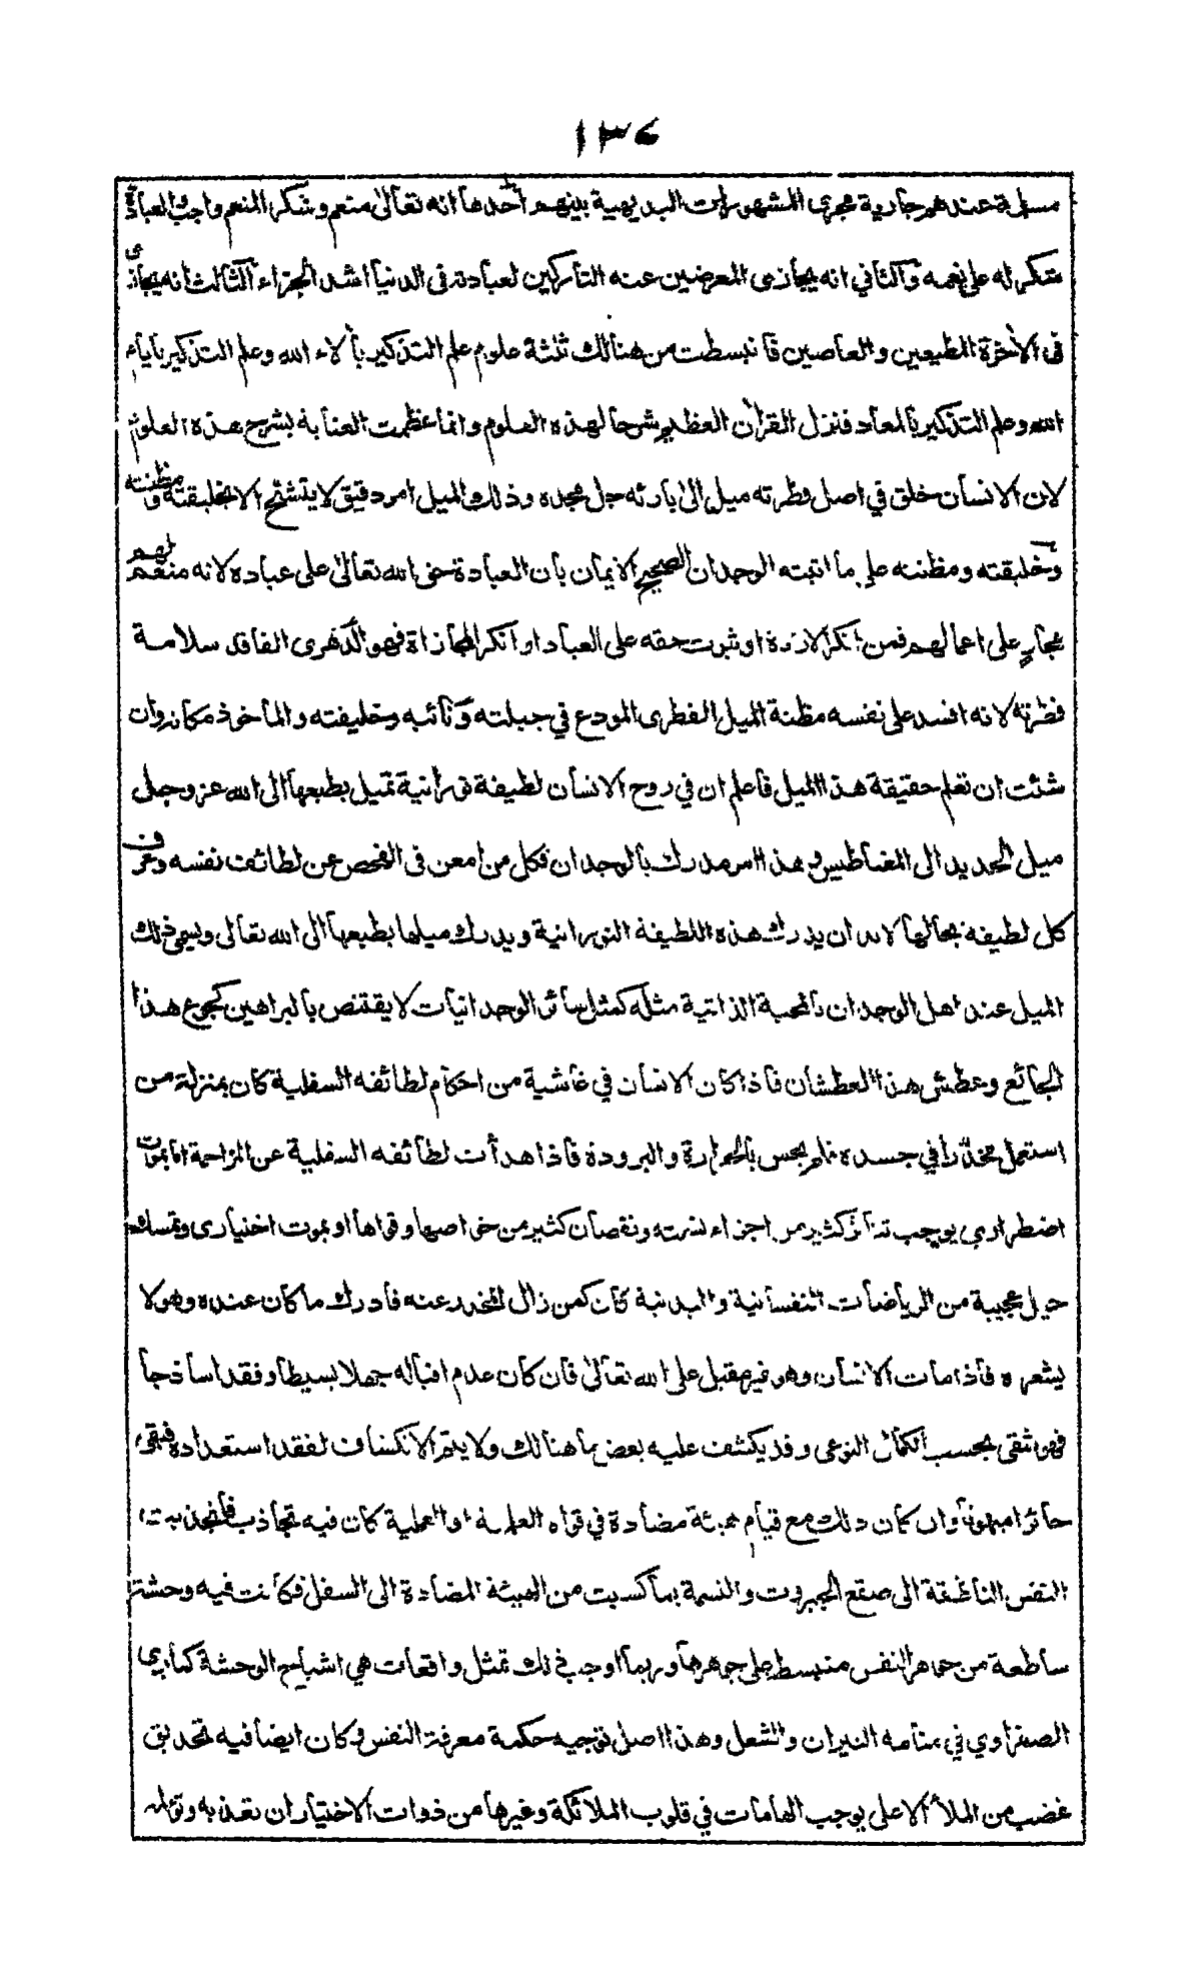 ١٣٤
مسلمة عندهم جارية مجرى المشهورات البديهية بينهم أحدها انه تعالى منعم وشكر المنعم واجب والعبادة
شكر له على نعمه والثاني انه يجازى المعرضين عنه التاركين لعبادته فى الدنيا اشد الجزاء الثالث انه يجازى
فى الأخرة المطيعين والعاصين فانبسطت من هنالك ثلثة علوم علم التذكير بألاء الله وعلم التذكير بايام
الله وعلم التذكير بالمعاد فنزل القرأن العظيم شرحا لهذه العلوم وانما عظمت العناية بشرح هذه العلوم
لان الانسان خلق في اصل فطرته ميل الى بارئه جل مجده وذلك الميل امر دقيق لا يتشبح الا بخليقته ومظنته
وخليقته ومظنته على ما اثبته الوجدان الصحيح الايمان بان العبادة حق الله تعالى على عباده لانه منعم لهم
مجاز على اعمالهم فمن انكر الارادة او ثبوت حقه على العباد او انكر المجازاة فهو الدهرى الفاقد سلامة
فطرته لانه افسد على نفسه مظنة الميل الفطرى المودع في جبلته ونائبه وخليفته والماخوذ مكانه وان
شئت ان تعلم حقيقة هذا الميل فاعلم ان في روح الانسان لطيفة نورانية تميل بطبعها الى الله عز وجل
ميل الحديد الى المغناطيس وهذا امر مدرك بالوجدان فكل من امعن فى الفحص عن لطائف نفسه وعرف
كل لطيفة بحالها لابد ان يدرك هذه اللطيفة النورانية ويدرك ميلها بطبعها الى الله تعالى ويسمى ذلك
الميل عند اهل الوجدان بالمحبة الذاتية مثله كمثل سائر الوجدانيات لا يقتنص بالبراهين كجوع هذا
الجائع وعطش هذا العطشان فاذا كان الانسان في غاشية من احكام لطائفه السفلية كان بمنزلة من
استعمل مخدرا في جسده فلم يحس بالحرارة والبرودة فاذا هدأت لطائفه السفلية عن المزاحمة اما بموت
اضطراري يوجب تناثر كثير من اجزاء نسمته ونقصان كثير من خواصها وقواها او بموت اختيارى وتمسك
حيل عجيبة من الرياضات النفسانية والبدنية كان كمن زال المخدر عنه فادرك ما كان عنده وهو لا
يشعر ه فاذا مات الانسان وهو غير مقبل على الله تعالى فان كان عدم اقباله جهلا بسيطا وفقدا ساذجا
فهو شقى بحسب الكمال النوعى وقد يكشف عليه بعض ما هنالك ولا يتم الانكشاف لفقد استعداده فبقى
حائرا مبهوتا وان كان ذلك مع قيام هيئة مضادة في قواه العلمية او العملية كان فيه تجاذب فانجذبت
النفس الناطقة الى صقع الجبروت والنسمة بما كسبت من الهيئة المضادة الى السفل فكانت فيه وحشة
ساطعة من جوهر النفس منبسطة على جوهرها وربما اوجب ذلك تمثل واقعات هي اشباح الوحشة كما يرى
الصفراوي في منامه النيران والشعل وهذا اصل توجيه حكمة معرفة النفس وكان ايضا فيه تحديق
غضب من الملأ الاعلى يوجب الهامات في قلوب الملائكة وغيرها من ذوات الاختيار ان تعذبه وتؤلمه